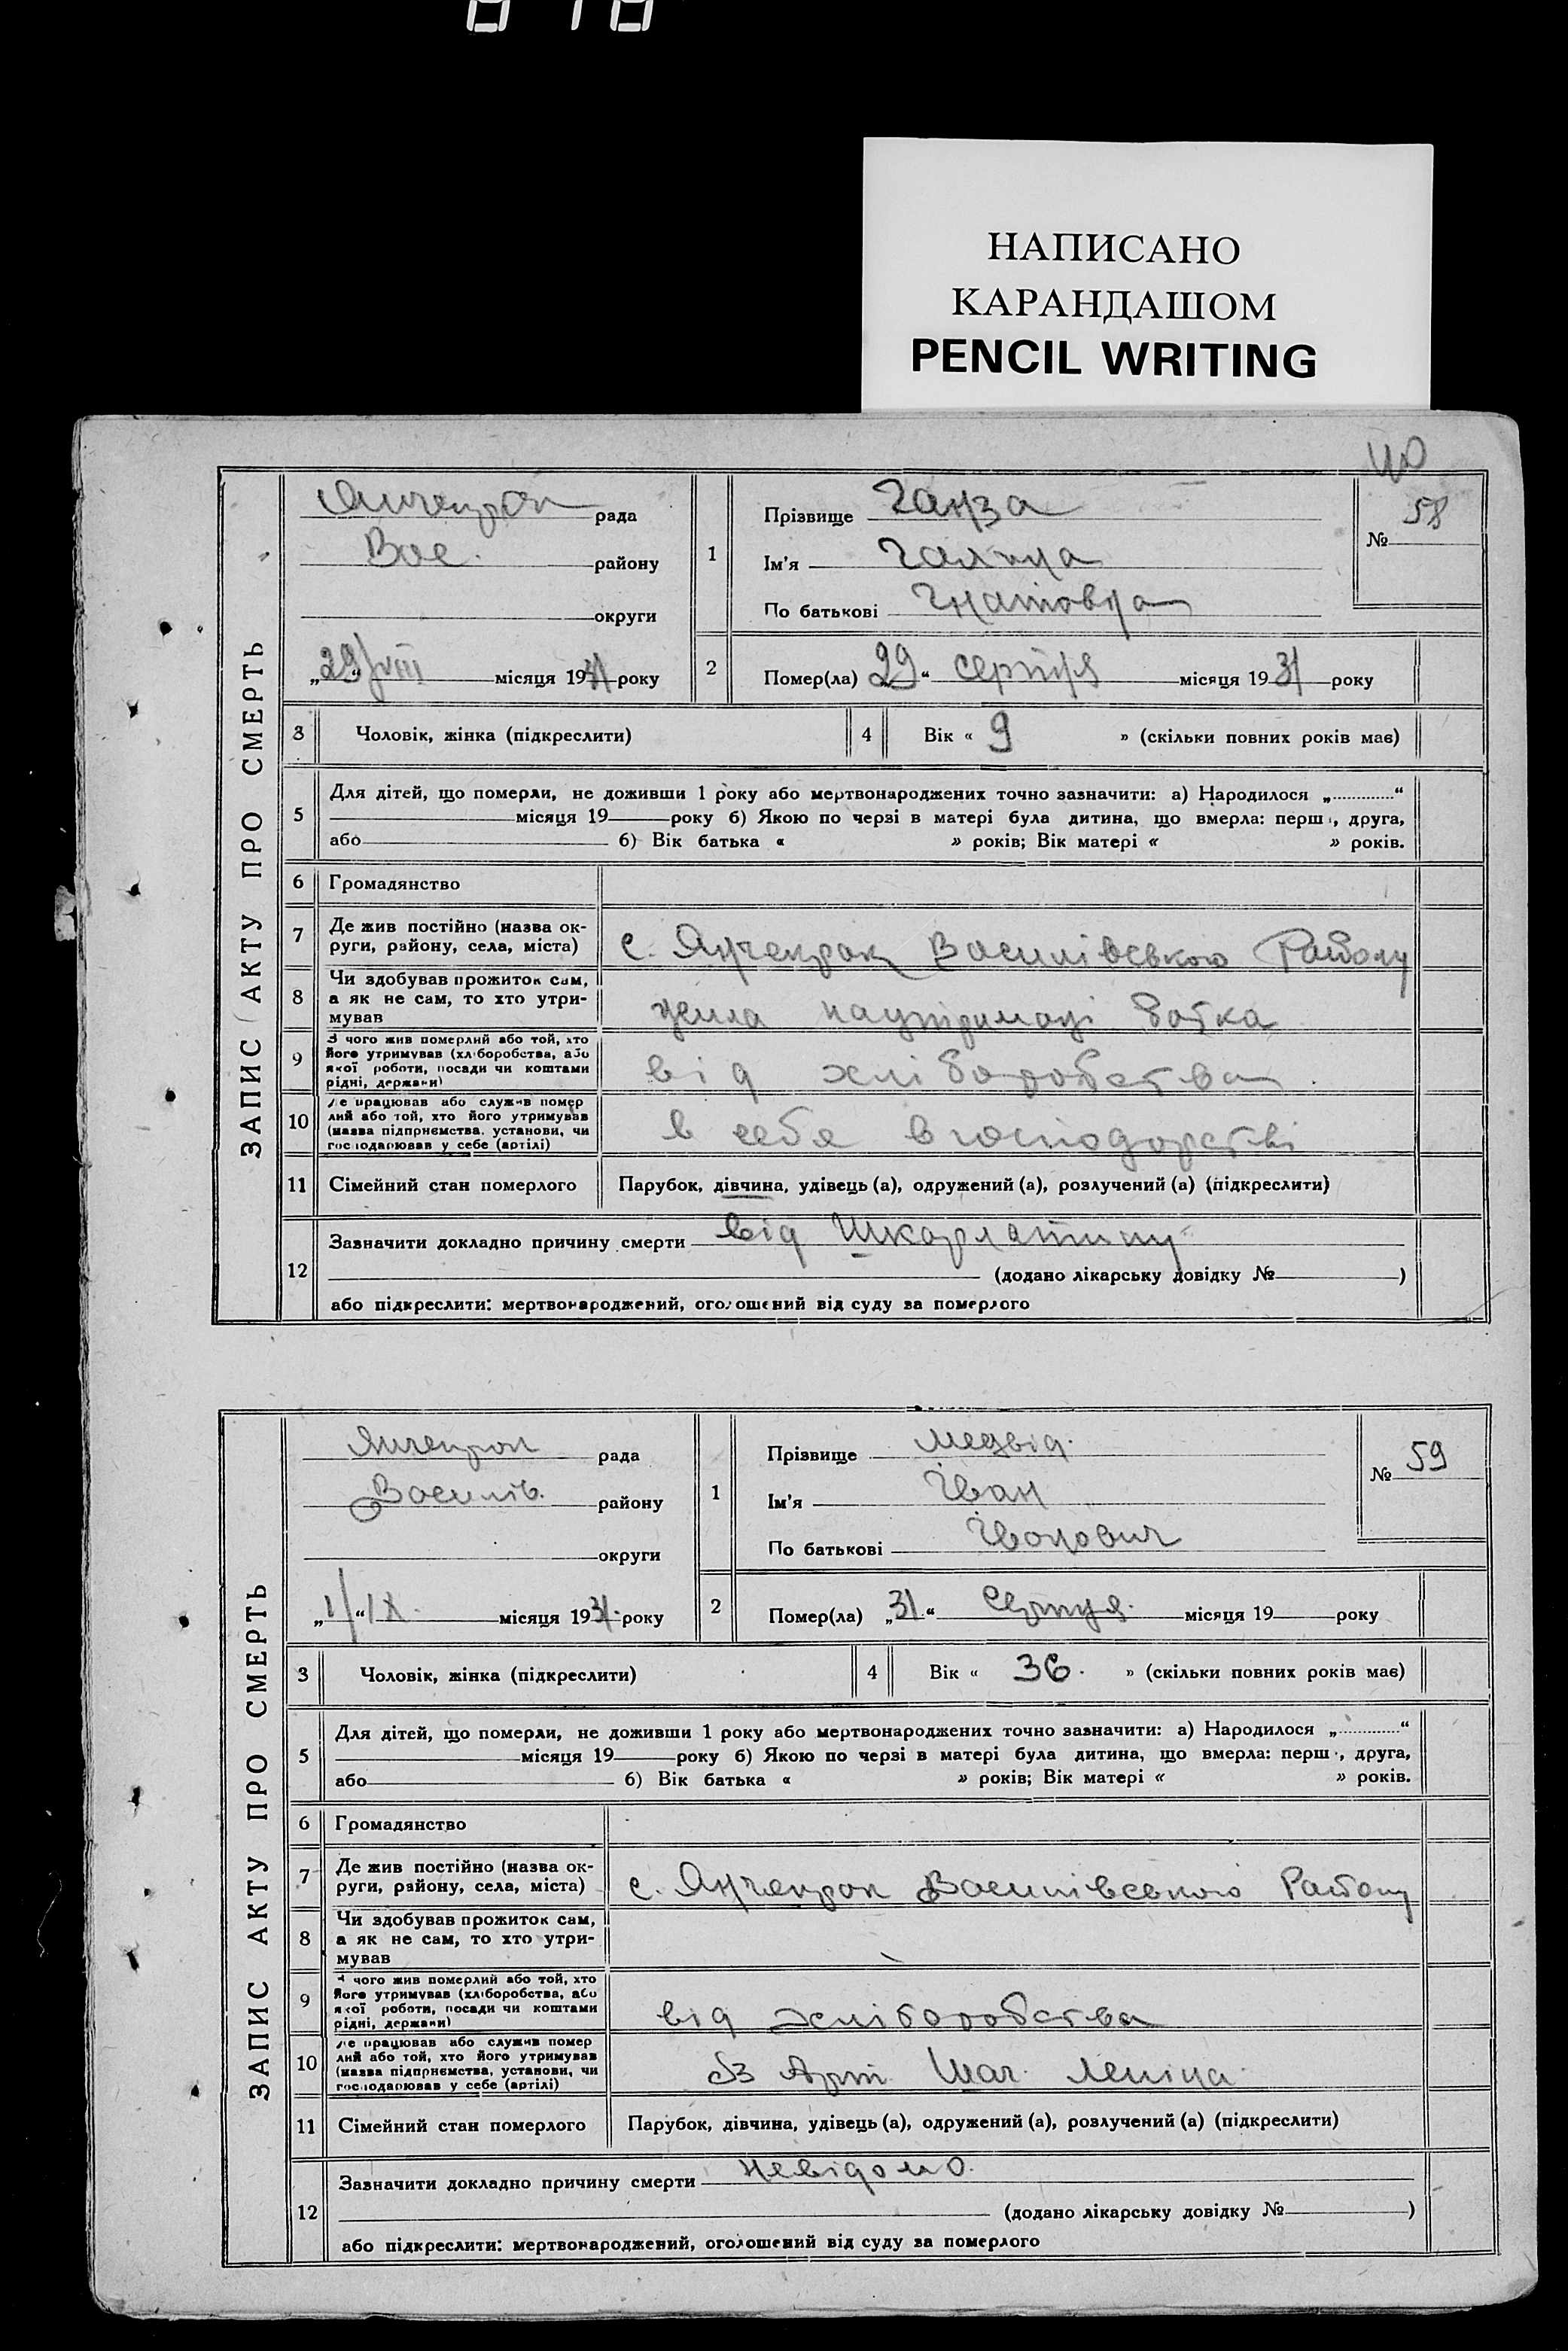 НАПИСАНО
КАРАНДАШОМ
PENCIL WRITING
ЗАПИС АКТУ ПРО СМЕРТЬ
Янчекрак рада
Вас. району
округи
„29“ VIII місяця 1931 року
1
Прізвище Ганза
Ім'я Галина
По батькові Гнатовна
№ 58
2
Помер(ла) 29“ серпня місяця 1931 року
3 Чоловік, жінка (підкреслити)
4 Вік « 9 » (скільки повних років має)
5
Для дітей, що померли, не доживши 1 року або мертвонароджених точно зазначити: а) Народилося „..............“
місяця 19 року б) Якою по черзі в матері була дитина, що вмерла: перша, друга,
або б) Вік батька « » років; Вік матері « » років.
6 Громадянство
7
Де жив постійно (назва ок-
руги, району, села, міста)
с. Янчекрак Василівського Району
8
Чи здобував прожиток сам,
а як не сам, то хто утри-
мував
на утриманці батка
9
З чого жив померлий або той, хто
його утримував (хліборобства, або
якої роботи, посади чи коштами
рідні, держави)
від хліборобства
10
Де працював або служив помер
лий або той, хто його утримував
(назва підприємства, установи, чи
господарював у себе (артілі)
в себе в господарстві
11 Сімейний стан померлого
Парубок, дівчина, удівець (а), одружений (а), розлучений (а) (підкреслити)
12
Зазначити докладно причину смерти від Шкарлатини
(додано лікарську довідку № )
або підкреслити: мертвонароджений, оголошений від суду за померлого
ЗАПИС АКТУ ПРО СМЕРТЬ
Янчекрак рада
Василів. району
округи
„1“ IX місяця 1931 року
1
Прізвище Медвід
Ім'я Іван
По батькові Іванович
№ 59
2
Помер(ла) „31“ Серпня місяця 19 року
3 Чоловік, жінка (підкреслити)
4 Вік « 36 » (скільки повних років має)
5
Для дітей, що померли, не доживши 1 року або мертвонароджених точно зазначити: а) Народилося „..............“
місяця 19 року б) Якою по черзі в матері була дитина, що вмерла: перша, друга,
або б) Вік батька « » років; Вік матері « » років.
6 Громадянство
7
Де жив постійно (назва ок-
руги, району, села, міста)
с. Янчекрак Василівського Району
8
Чи здобував прожиток сам,
а як не сам, то хто утри-
мував
9
З чого жив померлий або той, хто
його утримував (хліборобства, або
якої роботи, посади чи коштами
рідні, держави)
від хліборобства
10
Де працював або служив помер
лий або той, хто його утримував
(назва підприємства, установи, чи
господарював у себе (артілі)
Арт. Леніна
11 Сімейний стан померлого
Парубок, дівчина, удівець (а), одружений (а), розлучений (а) (підкреслити)
12
Зазначити докладно причину смерти невідомо.
(додано лікарську довідку № )
або підкреслити: мертвонароджений, оголошений від суду за померлого